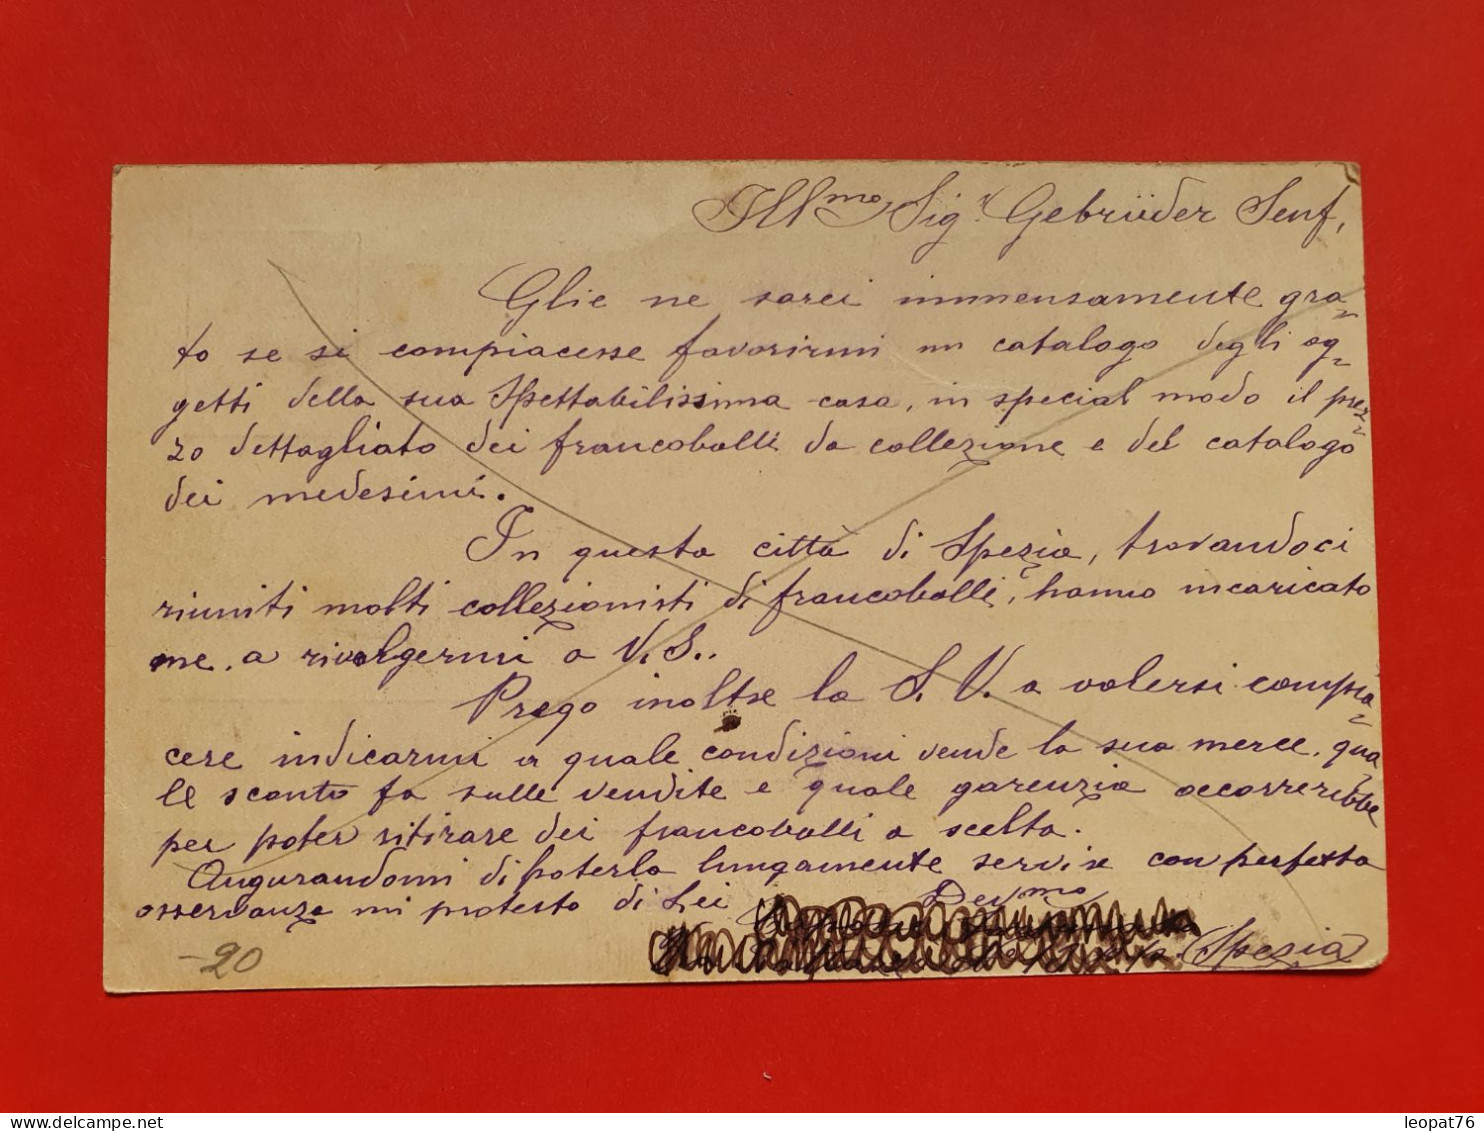 Ill.mo Sig.r Gebrüder Senf,
Glie ne sarei immensamente gra-
to se si compiacesse favorirmi un catalogo degli og-
getti della sua Spettabilissima casa, in special modo il prez-
zo dettagliato dei francobolli da collezione e del catalogo
dei medesimi.
In questa città di Spezia, trovandoci
riuniti molti collezionisti di francobolli, hanno incaricato
me, a rivolgermi a V.S..
Prego inoltre la S.V. a volersi compia-
cere indicarmi a quale condizioni vende la sua merce, qua-
le sconto fa sulle vendite e quale garenzia occorrerebbe
per poter ritirare dei francobolli a scelta.
Augurandomi di poterla lungamente servire con perfetta
osservanza mi protesto di Lei Dev.mo
(Spezia)
-20
delcampe.net
leopat76